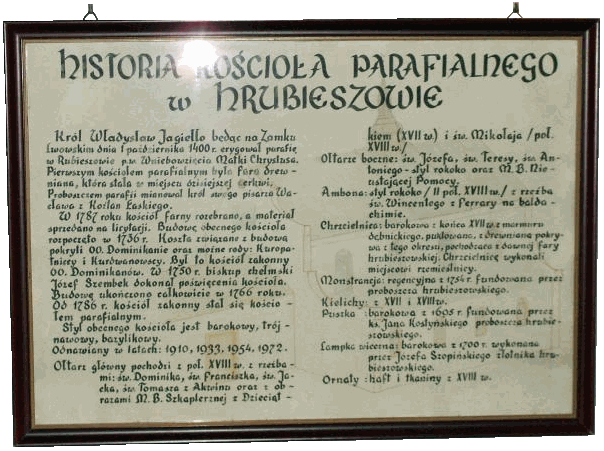 HISTORIA KOŚCIOŁA PARAFIALNEGO
w HRUBIESZOWIE
Król Władysław Jagiełło będąc na Zamku
Lwowskim dnia 1 października 1400 r. erygował parafię
w Rubieszowie p.w. Wniebowzięcia Matki Chrystusa.
Pierwszym kościołem parafialnym była fara drew-
niana, która stała w miejscu dzisiejszej cerkwi.
Proboszczem parafii mianował król swego pisarza Wa-
cława z Koźlan Łaskiego.
W 1787 roku kościół farny rozebrano, a materiał
sprzedano na licytacji. Budowę obecnego kościoła
rozpoczęto w 1736 r. Koszta związane z budową
pokryli OO. Dominikanie oraz możne rody: Kuropa-
tniccy i Kurdwanowscy. Był to kościół zakonny
OO. Dominikanów. W 1750 r. biskup chełmski
Józef Szembek dokonał poświęcenia kościoła.
Budowę ukończono całkowicie w 1766 roku.
Od 1786 r. kościół zakonny stał się kościo-
łem parafialnym.
Styl obecnego kościoła jest barokowy, trój-
nawowy, bazylikowy.
Odnawiany w latach: 1910, 1933, 1954, 1972.
Ołtarz główny pochodzi z poł. XVIII w. z rzeźba-
mi: św. Dominika, św. Franciszka, św. Ja-
cka, św. Tomasza z Akwinu oraz z ob-
razami M.B. Szkaplerznej z Dzieciąt-
kiem (XVII w.) i św. Mikołaja /poł.
XVIII w./
Ołtarze boczne: św. Józefa, św. Teresy, św. An-
toniego - styl rokoko oraz M.B. Nie-
ustającej Pomocy.
Ambona: styl rokoko / II poł. XVIII w./ z rzeźbą
św. Wincentego z Ferrary na balda-
chimie.
Chrzcielnica: barokowa z końca XVII w. z marmuru
dębnickiego, puklowana, z drewnianą pokry-
wą z tego okresu, pochodząca z dawnej fary
hrubieszowskiej. Chrzcielnicę wykonali
miejscowi rzemieślnicy.
Monstrancja: regencyjna z 1754 r. fundowana przez
proboszcza hrubieszowskiego.
Kielichy: z XVII i XVIII w.
Puszka: barokowa z 1695 r. fundowana przez
ks. Jana Kostyńskiego proboszcza hrubie-
szowskiego.
Lampka wieczna: barokowa z 1700 r. wykonana
przez Józefa Szopińskiego złotnika hru-
bieszowskiego.
Ornaty: haft i tkaniny z XVIII w.